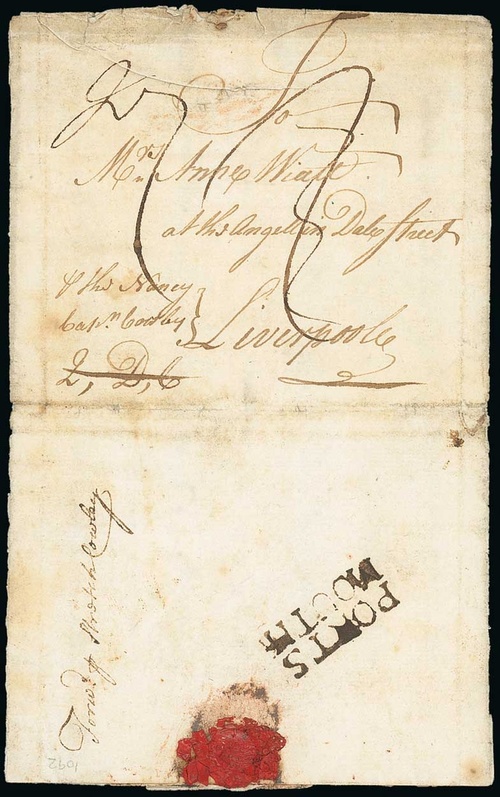 To
Mrs. Anne Wiatt
at the Angell in Dale street
Liverpoole
⅌ the Nancy
Capn. Cowley
2, D, C
Forwd. ⅌
Cowley
PORTS
MOUTH
1692